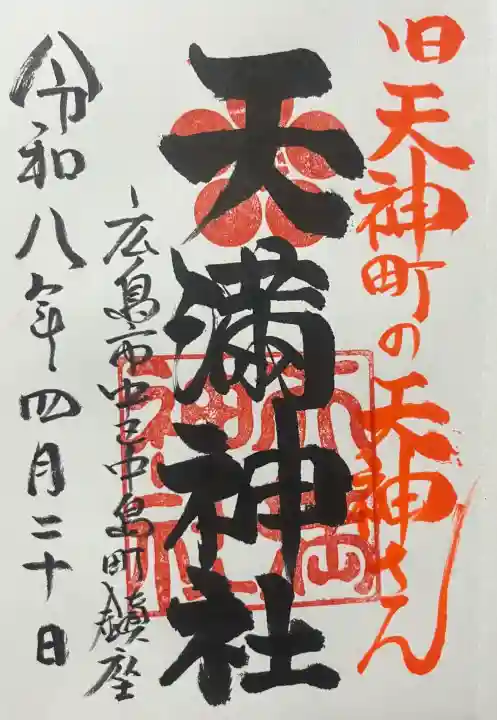 旧天神町の天神さん
天満神社
天満
神社
広島市中区中島町鎮座
令和八年四月二十日